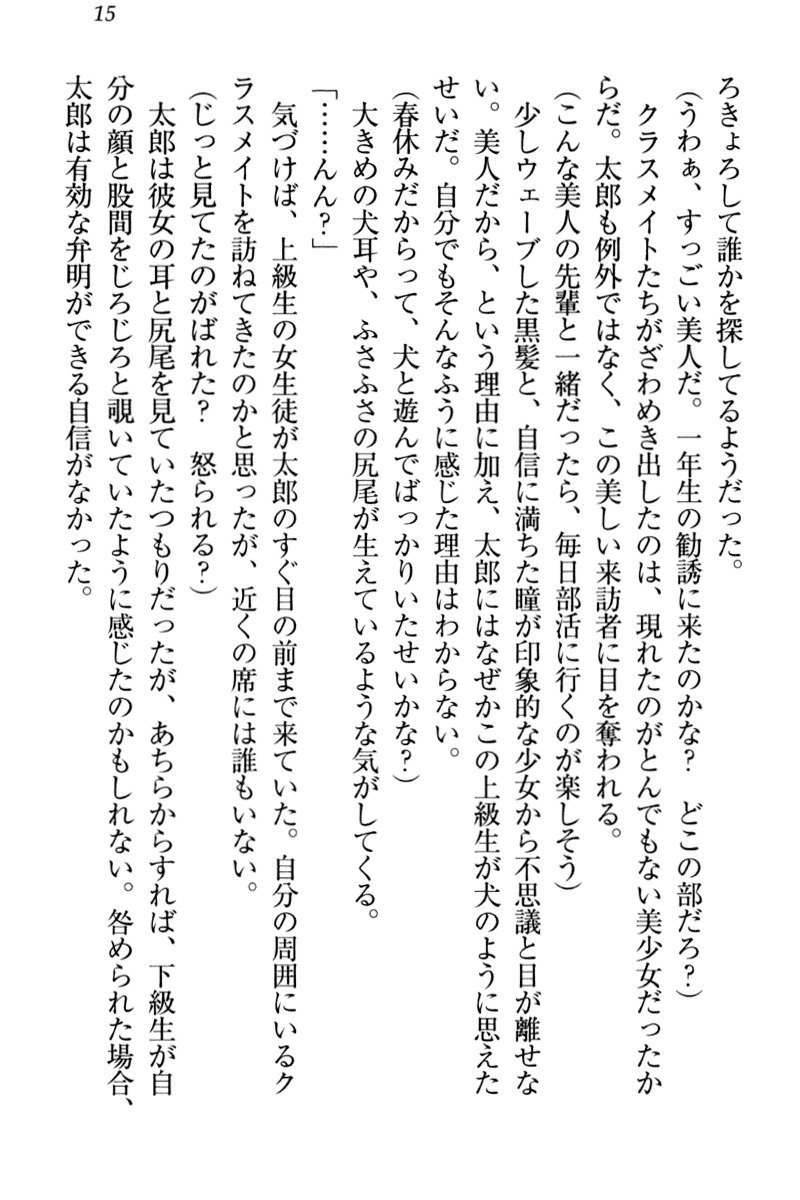 15
ろきょろして誰かを探してるようだった。
(うわぁ、すっごい美人だ。一年生の勧誘に来たのかな？　どこの部だろ？)
　クラスメイトたちがざわめき出したのは、現れたのがとんでもない美少女だったか
らだ。太郎も例外ではなく、この美しい来訪者に目を奪われる。
(こんな美人の先輩と一緒だったら、毎日部活に行くのが楽しそう)
　少しウェーブした黒髪と、自信に満ちた瞳が印象的な少女から不思議と目が離せな
い。美人だから、という理由に加え、太郎にはなぜかこの上級生が犬のように思えた
せいだ。自分でもそんなふうに感じた理由はわからない。
(春休みだからって、犬と遊んでばっかりいたせいかな？)
　大きめの犬耳や、ふさふさの尻尾が生えているような気がしてくる。
「……んん？」
　気づけば、上級生の女生徒が太郎のすぐ目の前まで来ていた。自分の周囲にいるク
ラスメイトを訪ねてきたのかと思ったが、近くの席には誰もいない。
(じっと見てたのがばれた？　怒られる？)
　太郎は彼女の耳と尻尾を見ていたつもりだったが、あちらからすれば、下級生が自
分の顔と股間をじろじろと覗いていたように感じたのかもしれない。咎められた場合、
太郎は有効な弁明ができる自信がなかった。